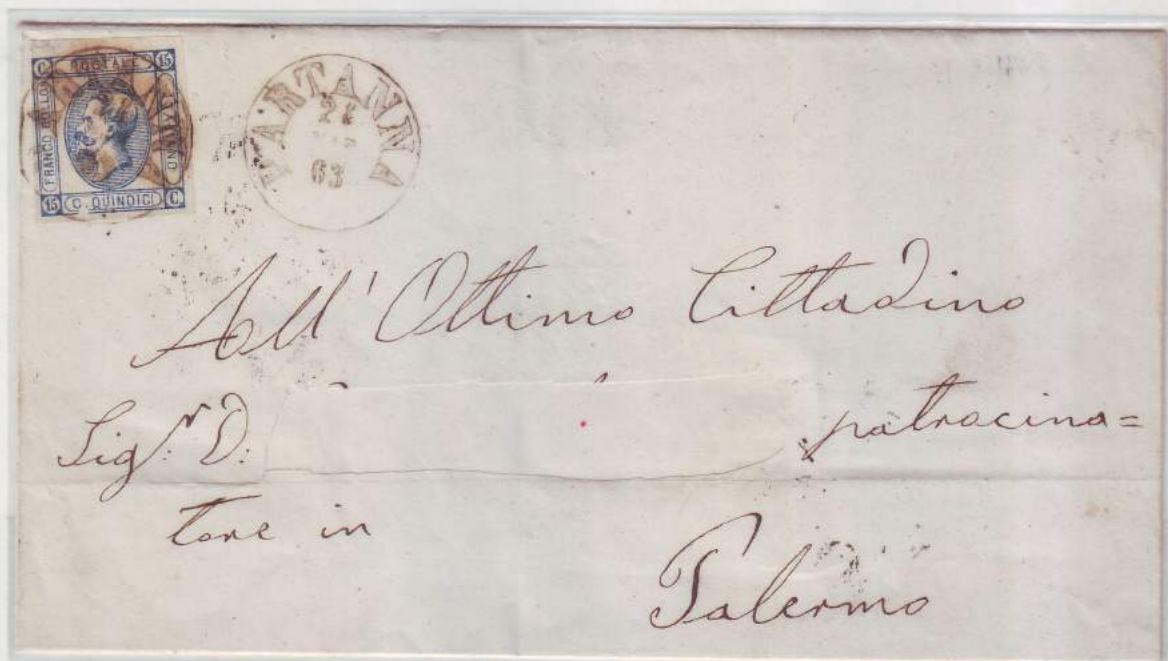 C POSTALE 15
FRANCO BOLLO
ITALIANO
15 C. QUINDICI C
PARTANNA
63
All' Ottimo Cittadino
Sigr. D: patrocina=
tore in
Palermo